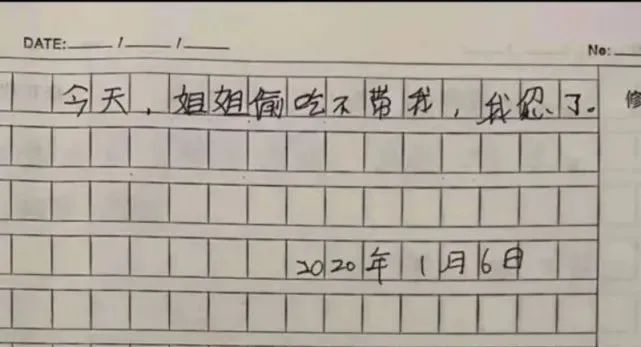 DATE: / /
No:
今天，姐姐偷吃不带我，我忍了.
2020年1月6日